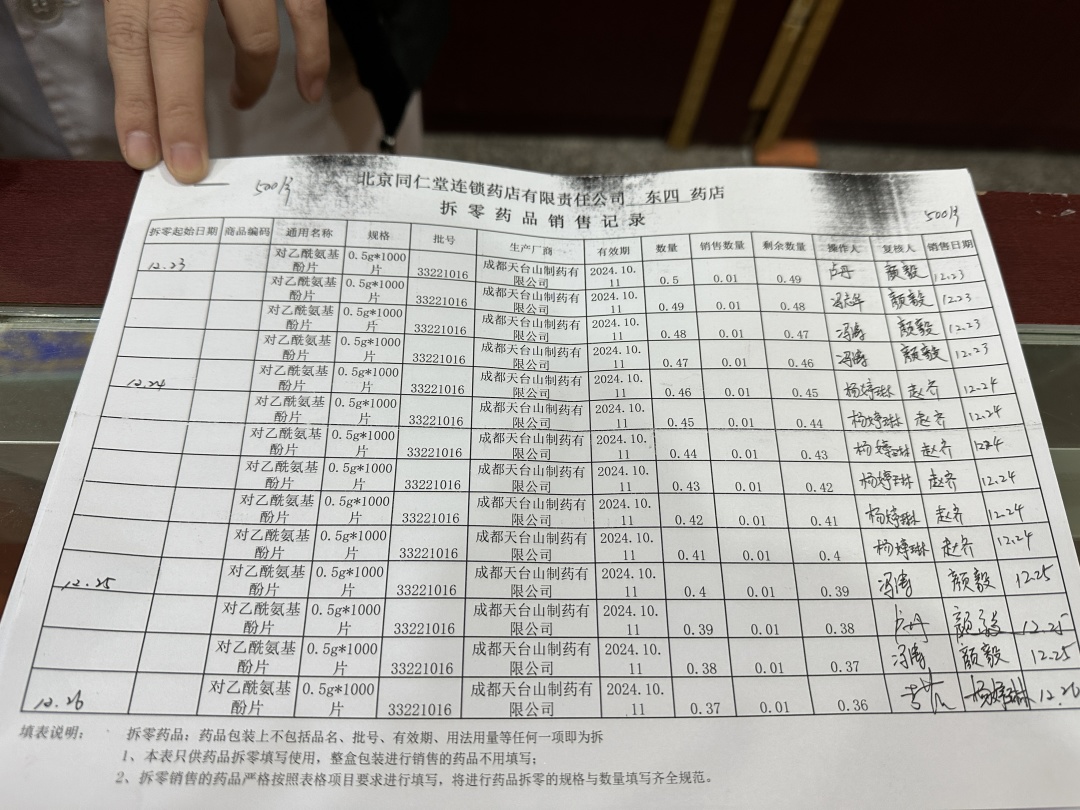 500片
500片
北京同仁堂连锁药店有限责任公司 东四 药店
拆零药品销售记录
拆零起始日期 商品编码 通用名称 规格 批号 生产厂商 有效期 数量 销售数量 剩余数量 操作人 复核人 销售日期
12.23 对乙酰氨基酚片 0.5g*1000片 33221016 成都天台山制药有限公司 2024.10.11 0.5 0.01 0.49 卢丹 颜毅 12.23
对乙酰氨基酚片 0.5g*1000片 33221016 成都天台山制药有限公司 2024.10.11 0.49 0.01 0.48 颜毅 12.23
对乙酰氨基酚片 0.5g*1000片 33221016 成都天台山制药有限公司 2024.10.11 0.48 0.01 0.47 冯涛 颜毅 12.23
对乙酰氨基酚片 0.5g*1000片 33221016 成都天台山制药有限公司 2024.10.11 0.47 0.01 0.46 冯涛 颜毅 12.23
12.24 对乙酰氨基酚片 0.5g*1000片 33221016 成都天台山制药有限公司 2024.10.11 0.46 0.01 0.45 杨婷琳 赵齐 12.24
对乙酰氨基酚片 0.5g*1000片 33221016 成都天台山制药有限公司 2024.10.11 0.45 0.01 0.44 杨婷琳 赵齐 12.24
对乙酰氨基酚片 0.5g*1000片 33221016 成都天台山制药有限公司 2024.10.11 0.44 0.01 0.43 杨婷琳 赵齐 12.24
对乙酰氨基酚片 0.5g*1000片 33221016 成都天台山制药有限公司 2024.10.11 0.43 0.01 0.42 杨婷琳 赵齐 12.24
对乙酰氨基酚片 0.5g*1000片 33221016 成都天台山制药有限公司 2024.10.11 0.42 0.01 0.41 杨婷琳 赵齐 12.24
对乙酰氨基酚片 0.5g*1000片 33221016 成都天台山制药有限公司 2024.10.11 0.41 0.01 0.4 杨婷琳 赵齐 12.24
12.25 对乙酰氨基酚片 0.5g*1000片 33221016 成都天台山制药有限公司 2024.10.11 0.4 0.01 0.39 冯涛 颜毅 12.25
对乙酰氨基酚片 0.5g*1000片 33221016 成都天台山制药有限公司 2024.10.11 0.39 0.01 0.38 卢丹 颜毅 12.25
对乙酰氨基酚片 0.5g*1000片 33221016 成都天台山制药有限公司 2024.10.11 0.38 0.01 0.37 冯涛 颜毅 12.25
12.26 对乙酰氨基酚片 0.5g*1000片 33221016 成都天台山制药有限公司 2024.10.11 0.37 0.01 0.36 杨婷琳 12.26
填表说明: 拆零药品:药品包装上不包括品名、批号、有效期、用法用量等任何一项即为拆
1、本表只供药品拆零填写使用,整盒包装进行销售的药品不用填写;
2、拆零销售的药品严格按照表格项目要求进行填写,将进行药品拆零的规格与数量填写齐全规范。